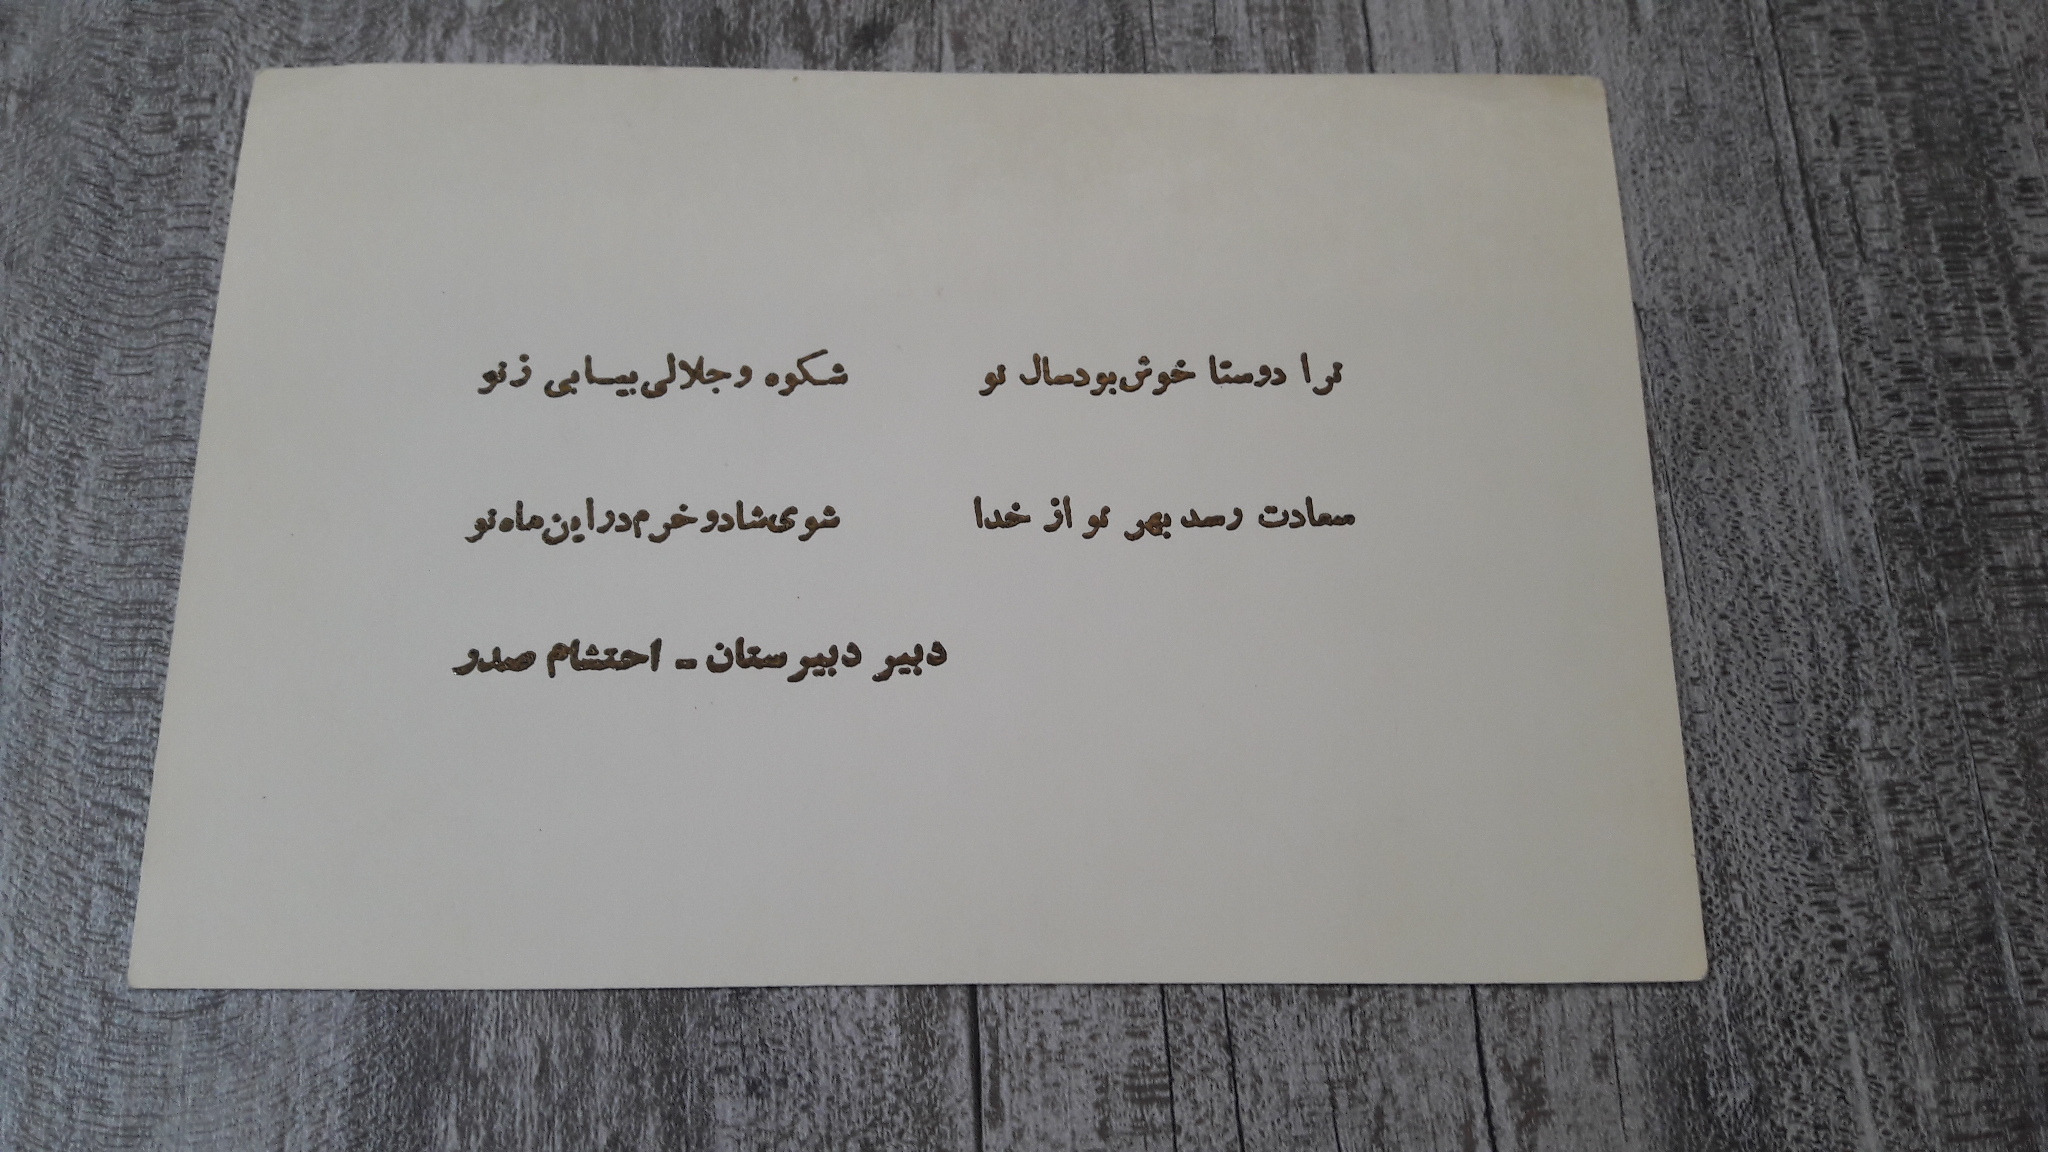 ترا دوستا خوش بود سال نو شکوه و جلالی بیابی ز نو
سعادت رسد بهر تو از خدا شوی شاد و خرم در این ماه نو
دبیر دبیرستان - احتشام صدر